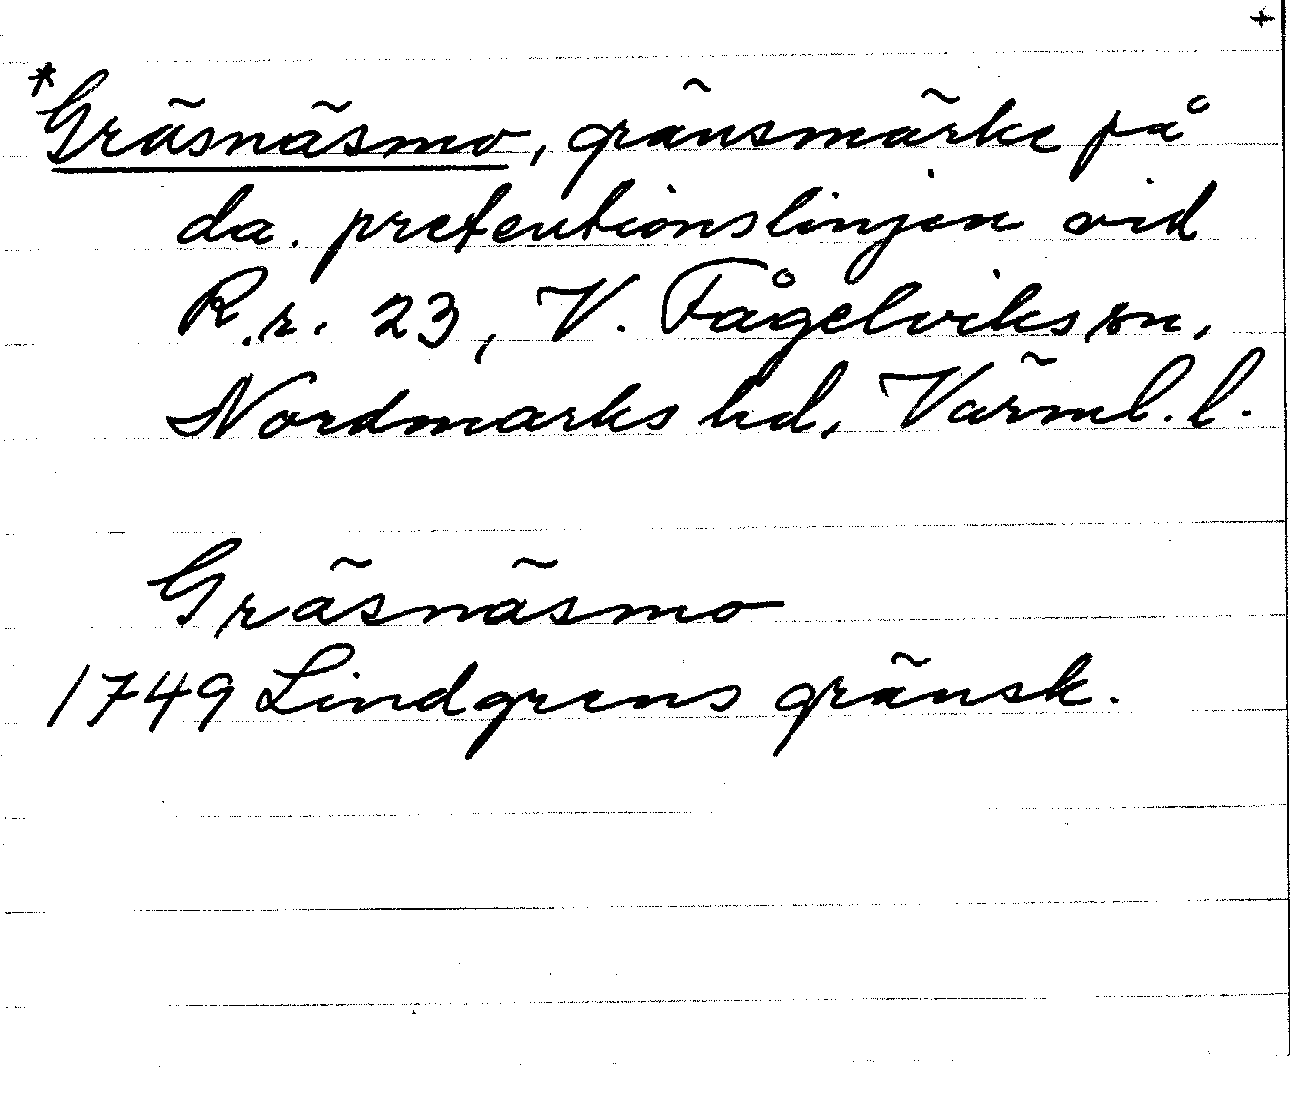 +
*Gräsnäsmo, gränsmärke på
da. pretentionslinjen vid
R.r. 23, V. Fågelviks sn,
Nordmarks hd, Värml. l.
Gräsnäsmo
1749 Lindgrens gränsk.